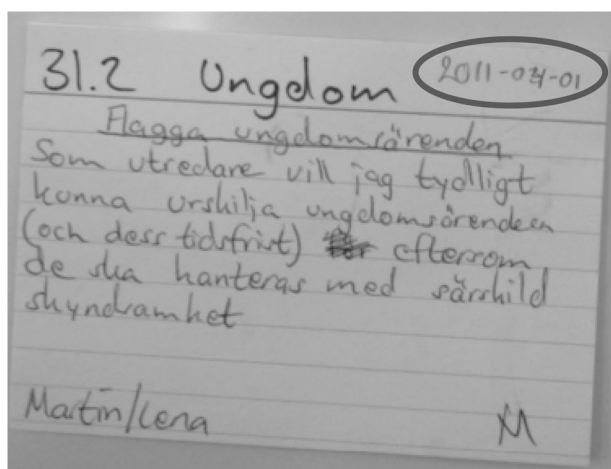 31.2 Ungdom 2011-04-01
Flagga ungdomsärenden
Som utredare vill jag tydligt
kunna urskilja ungdomsärenden
(och dess tidsfrist) eftersom
de ska hanteras med särskild
skyndsamhet
Martin/Lena M